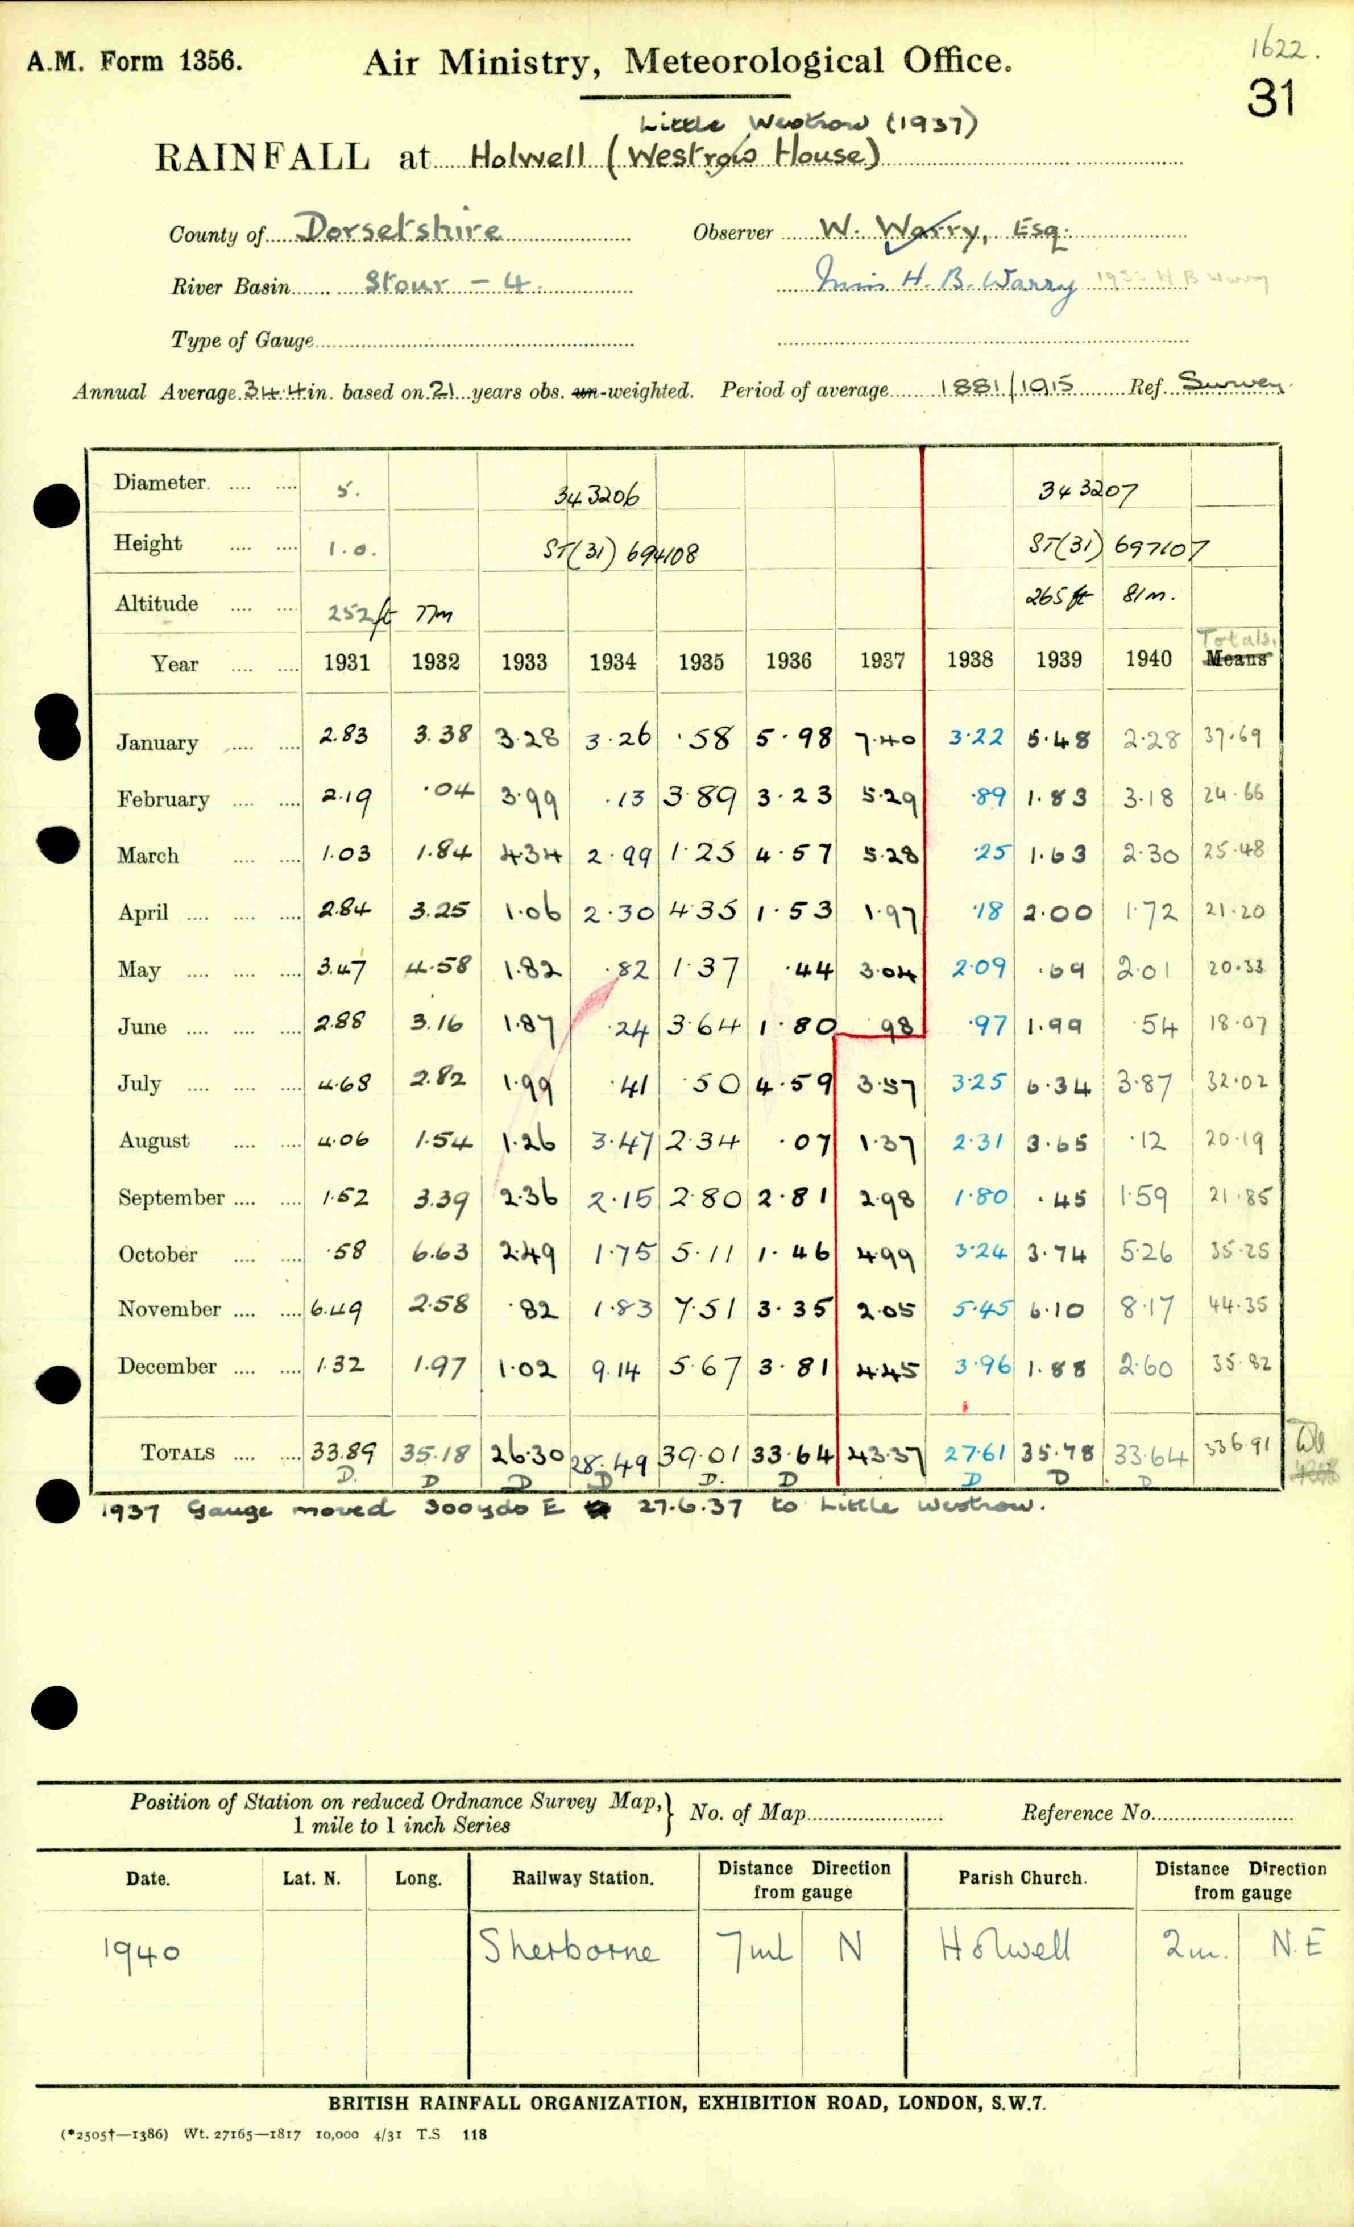 1622.
A.M. Form 1356. Air Ministry, Meteorological Office. 31
Little Westrow (1937)
RAINFALL at Holwell (Westrow House)
County of Dorsetshire Observer W. Warry, Esq.
River Basin Stour - 4. Miss H. B. Warry
Type of Gauge
Annual Average 34.4 in. based on 21 years obs. un-weighted. Period of average 1881/1915 Ref. Survey.
Diameter 5. 343206 343207
Height 1.0. ST(31) 694108 ST(31) 697107
Altitude 252ft 77m 265ft 81m.
Totals.
Year 1931 1932 1933 1934 1935 1936 1937 1938 1939 1940 Means
January 2.83 3.38 3.28 3.26 .58 5.98 7.40 3.22 5.48 2.28 37.69
February 2.19 .04 3.99 .13 3.89 3.23 5.29 .89 1.83 3.18 24.66
March 1.03 1.84 4.34 2.99 1.25 4.57 5.28 .25 1.63 2.30 25.48
April 2.84 3.25 1.06 2.30 4.35 1.53 1.97 .18 2.00 1.72 21.20
May 3.47 4.58 1.82 .82 1.37 .44 3.04 2.09 .69 2.01 20.33
June 2.88 3.16 1.87 .24 3.64 1.80 .98 .97 1.99 .54 18.07
July 4.68 2.82 1.99 .41 .50 4.59 3.57 3.25 6.34 3.87 32.02
August 4.06 1.54 1.26 3.47 2.34 .07 1.37 2.31 3.65 .12 20.19
September 1.52 3.39 2.36 2.15 2.80 2.81 2.98 1.80 .45 1.59 21.85
October .58 6.63 2.49 1.75 5.11 1.46 4.99 3.24 3.74 5.26 35.25
November 6.49 2.58 .82 1.83 7.51 3.35 2.05 5.45 6.10 8.17 44.35
December 1.32 1.97 1.02 9.14 5.67 3.81 4.45 3.96 1.88 2.60 35.82
TOTALS 33.89 35.18 26.30 28.49 39.01 33.64 43.37 27.61 35.78 33.64 336.91
D. D D D D. D D D D
1937 Gauge moved 300yds E 27.6.37 to Little Westrow.
Position of Station on reduced Ordnance Survey Map, 1 mile to 1 inch Series } No. of Map Reference No.
Date. Lat. N. Long. Railway Station. Distance Direction from gauge Parish Church. Distance Direction from gauge
1940 Sherborne 7ml N Holwell 2m. N.E
BRITISH RAINFALL ORGANIZATION, EXHIBITION ROAD, LONDON, S.W.7.
(*2505†—1386) Wt. 27165—1817 10,000 4/31 T.S 118